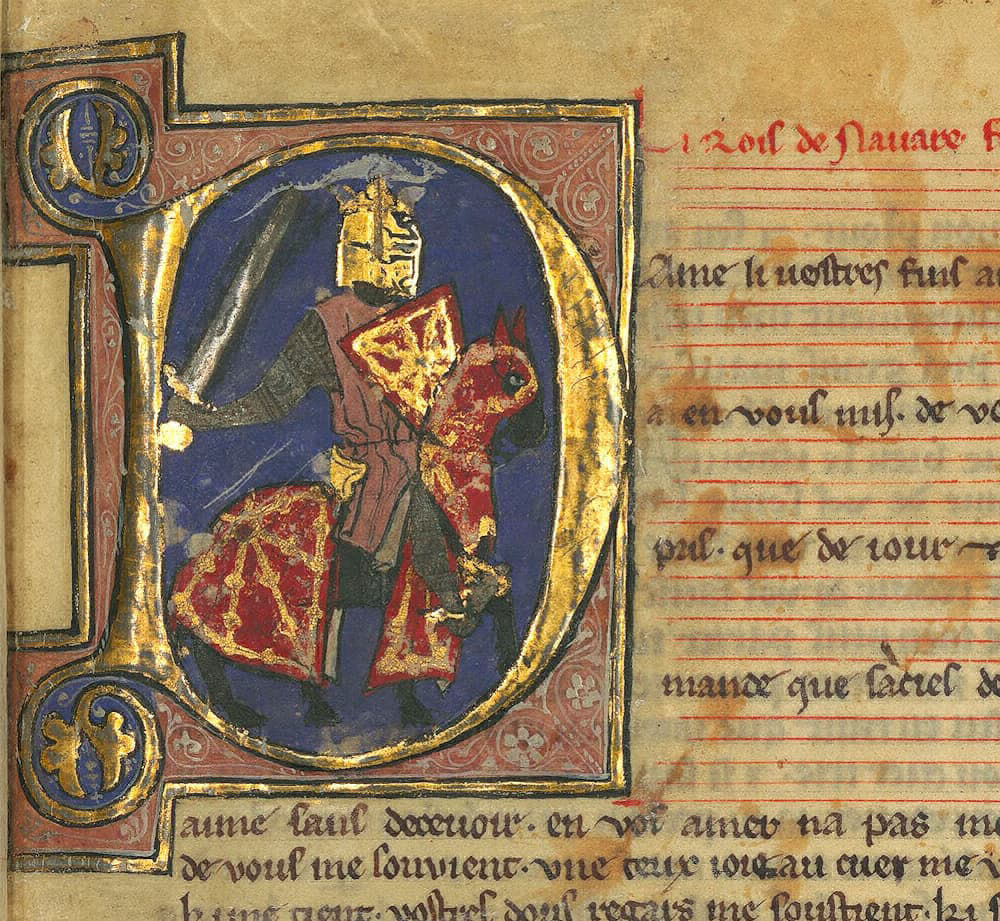 Li Rois de Navare. F
DAme li uostres fins a
a en vous mis. de vo
pris. que de iour
mande que sa ciel de
aime sans deceuoir. en vos amer na pas
de vous me souvient. vne ioie au cuer me v
tient. vostres dous regars me soustient.